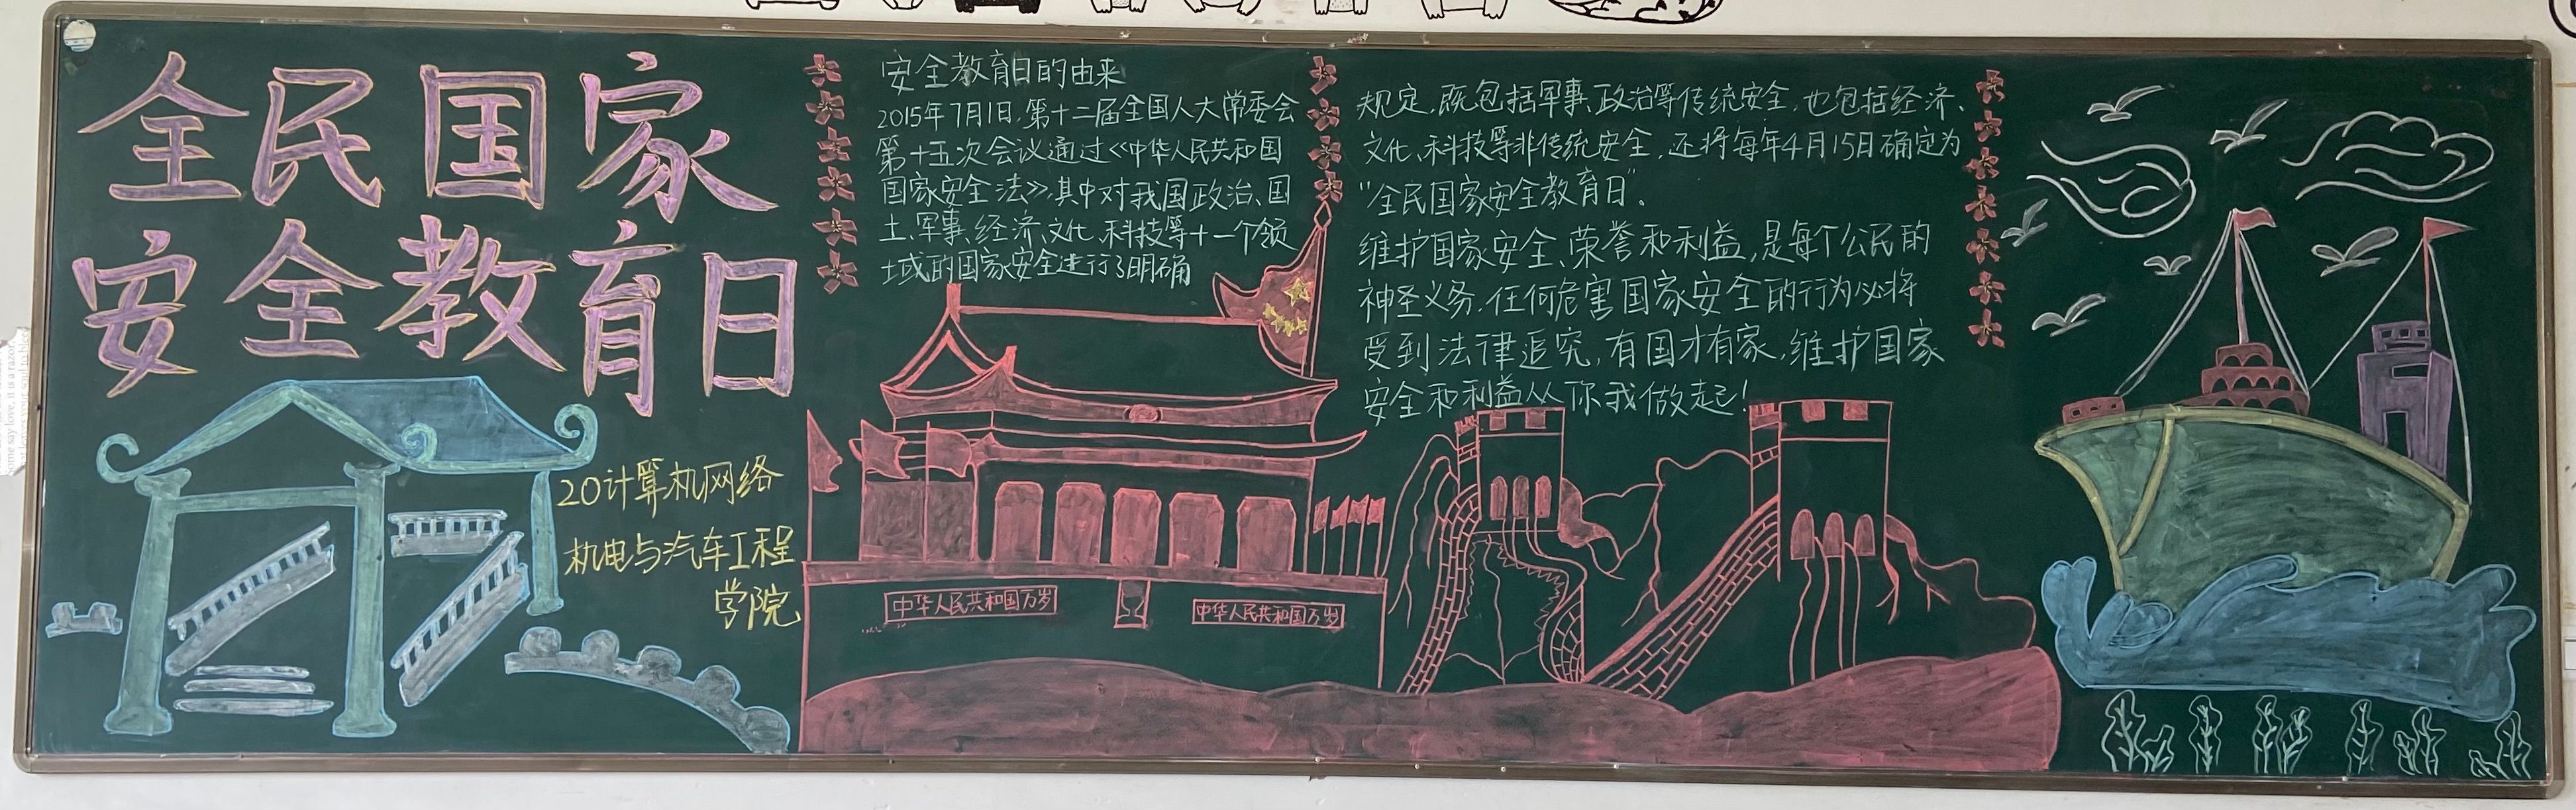 全民国家
安全教育日
20计算机网络
机电与汽车工程
学院
安全教育日的由来
2015年7月1日,第十二届全国人大常委会
第十五次会议通过《中华人民共和国
国家安全法》,其中对我国政治、国
土、军事、经济、文化、科技等十一个领
域的国家安全进行了明确
规定,既包括军事、政治等传统安全,也包括经济、
文化、科技等非传统安全,还将每年4月15日确定为
"全民国家安全教育日"。
维护国家安全、荣誉和利益,是每个公民的
神圣义务,任何危害国家安全的行为必将
受到法律追究,有国才有家,维护国家
安全和利益从你我做起!
中华人民共和国万岁
中华人民共和国万岁